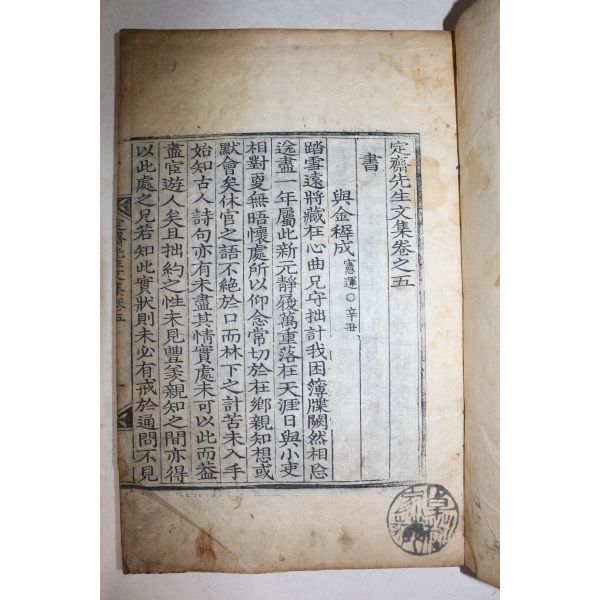 定齋先生文集卷之五
書
與金穉成 憲運○辛丑
踏雪遠將藏在心曲兄守拙計我困簿牒闕然相阻
迄盡一年屬此新元靜履萬重落在天涯日與小吏
相對更無晤懷處所以仰念常切於在鄕親知想或
默會矣休官之語不絶於口而林下之計苦未入手
始知古人詩句亦有未盡其情實處未可以此而益
盡宦遊人矣且拙約之性未見豐羨親知之間亦得
以此處之兄若知此實狀則未必有戒於通問不見
定齋先生文集卷五